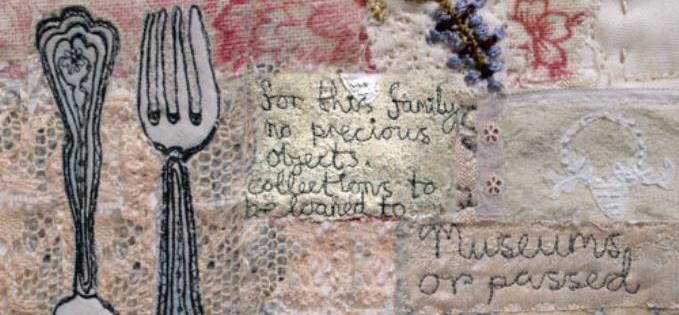 for this family,
no precious
objects.
collections to
be loaned to
Museums,
or passed